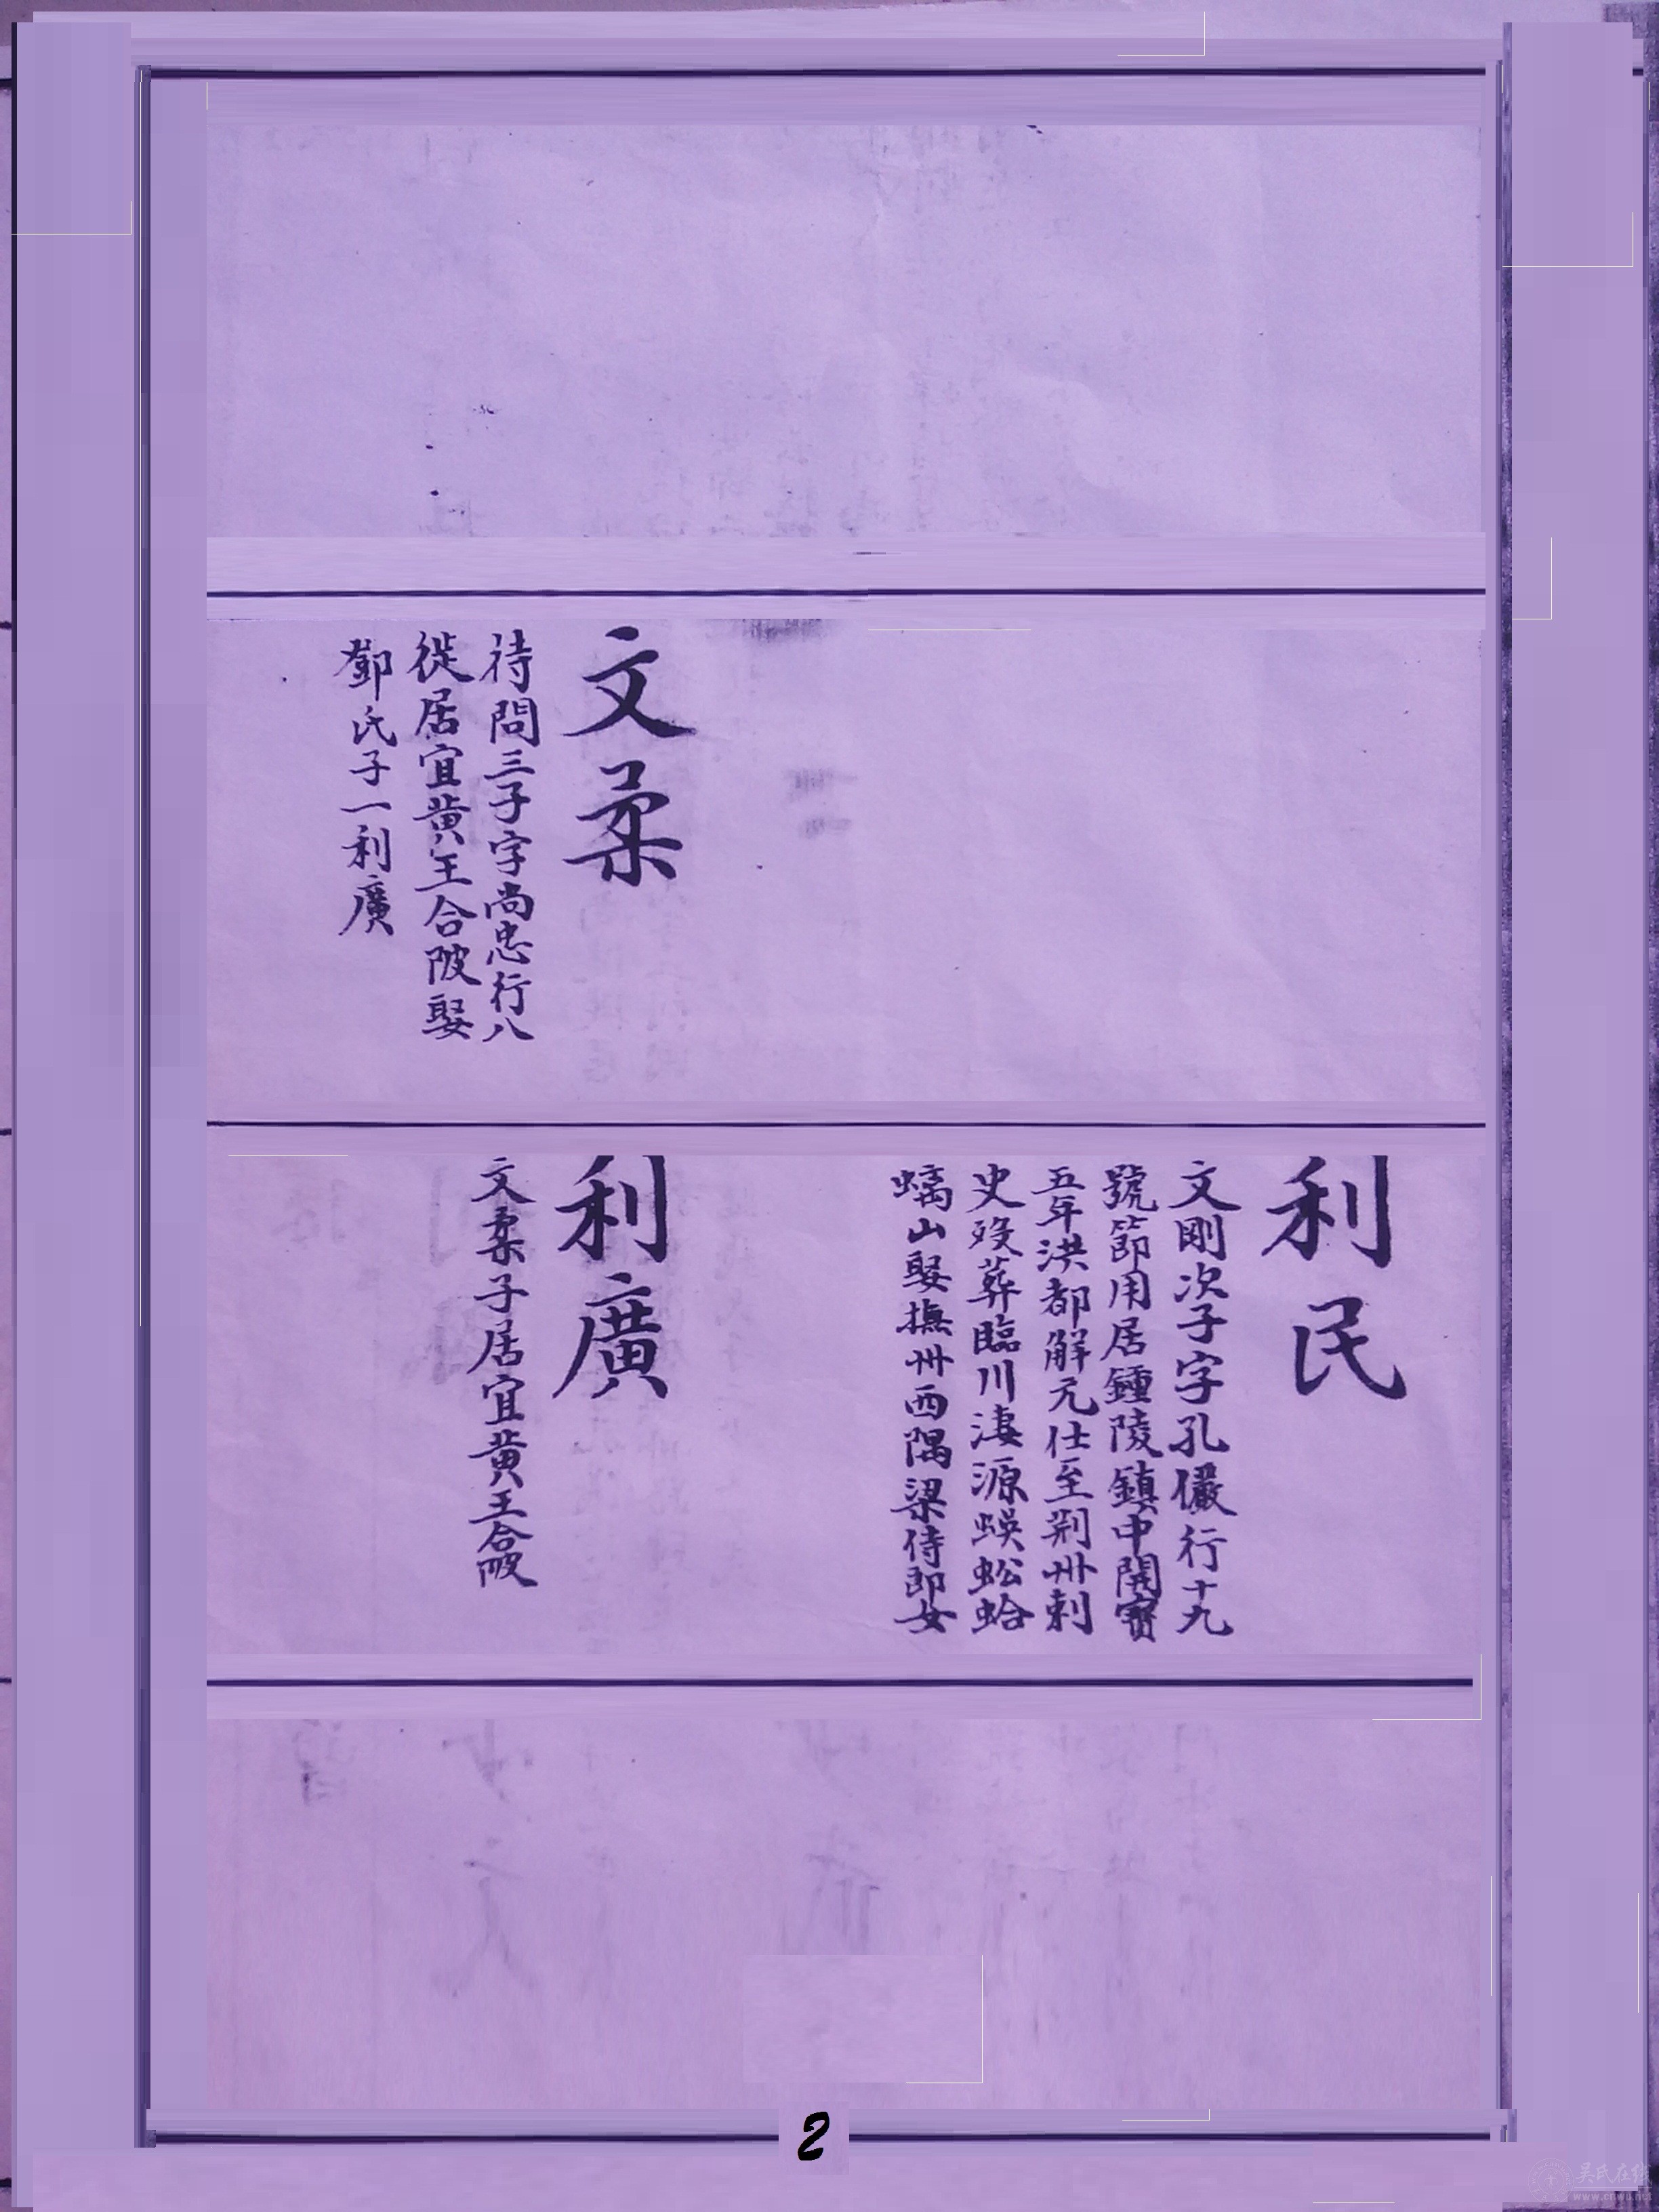 文柔
待問三子字尚忠行八
徙居宜黄王合陂娶
鄧氏子一利廣
利民
文剛次子字孔儼行十九
號節用居鍾陵鎮中開寳
五年洪都解元仕至荆州刺
史殁葬臨川淒源蜈蚣蛤
螭山娶撫州西隅梁侍郎女
利廣
文柔子居宜黄王合陂
2
吴氏在线
www.cnwu.net